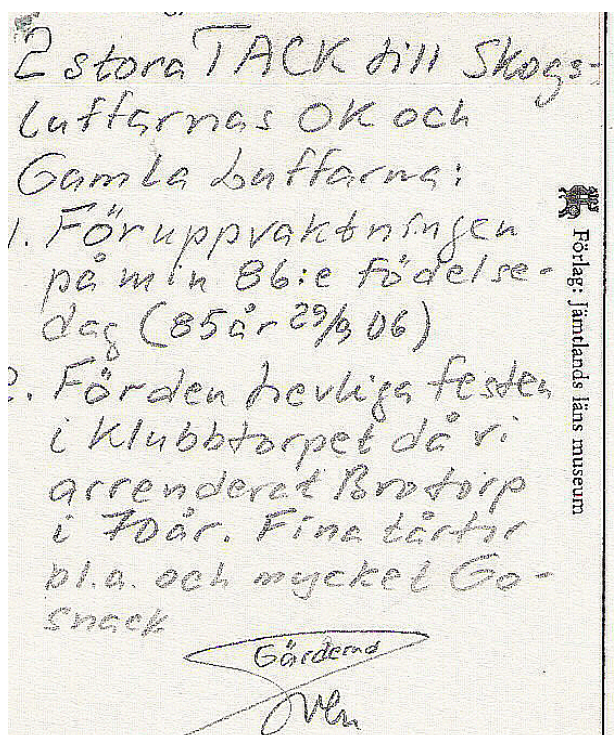 2 stora TACK till Skogs-
luffarnas OK och
Gamla Luffarna:
1. För uppvaktningen
på min 86:e födelse-
dag (85 år 29/9 06)
2. För den trevliga festen
i Klubbtorpet då vi
arrenderat Brotorp
i 70 år. Fina tårtor
bl.a. och mycket Go-
snack
Sven
Förlag: Jämtlands läns museum